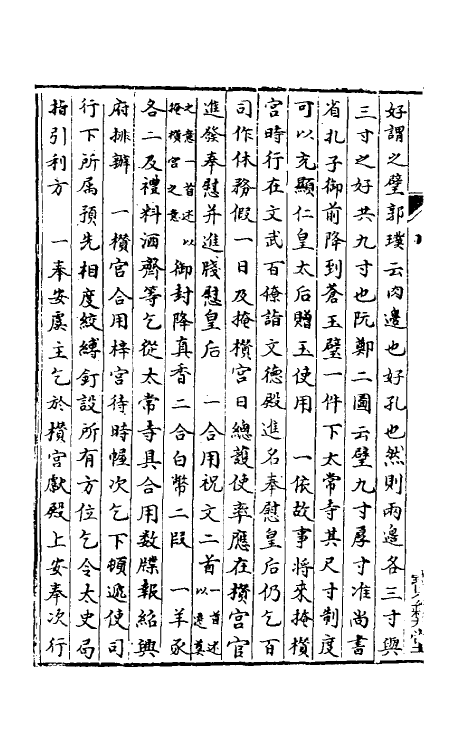 好謂之璧郭璞云肉邊也好孔也然則兩邊各三寸與
三寸之好共九寸也阮鄭二圖云璧九寸厚寸准尚書
省孔子御前降到蒼玉璧一件下太常寺其尺寸制度
可以充顯仁皇太后贈玉使用　一依故事將來掩攢
宮時行在文武百僚詣文德殿進名奉慰皇后仍乞百
司作休務假一日及掩攢宮日總護使率應在攢宮官
進發奉慰并進牋慰皇后　一合用祝文二首一首述以遷奠
之意一首述以掩攢宮之意御封降真香二合白幣二段　一羊豕
各二及禮料酒齊等乞從太常寺具合用數牒報紹興
府排辦　一攢宮合用梓宮待時幄次乞下頓遞使司
行下所屬預先相度絞縛釘設所有方位乞令太史局
指引利方　一奉安虞主乞於攢宮獻殿上安奉次行